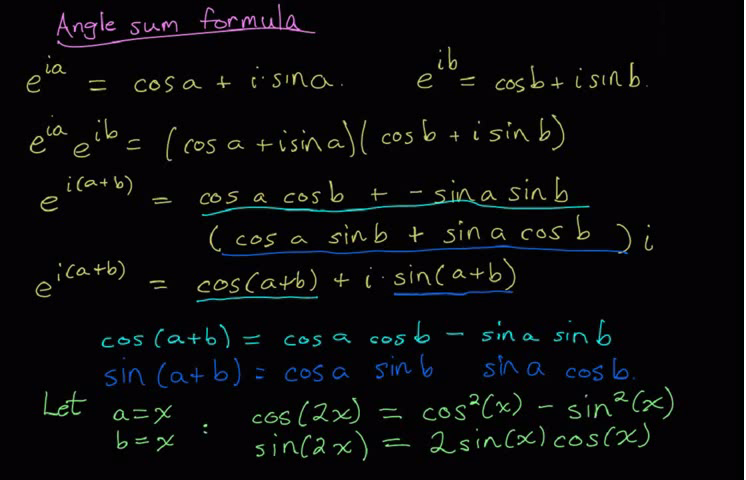 Angle sum formula
e^{ia} = cos a + i · sin a. e^{ib} = cos b + i sin b.
e^{ia} e^{ib} = (cos a + i sin a)(cos b + i sin b)
e^{i(a+b)} = cos a cos b + - sin a sin b
(cos a sin b + sin a cos b) i
e^{i(a+b)} = cos(a+b) + i · sin(a+b)
cos (a+b) = cos a cos b - sin a sin b
sin (a+b) = cos a sin b sin a cos b.
Let a = x : cos(2x) = cos²(x) - sin²(x)
b = x sin(2x) = 2 sin(x) cos(x)